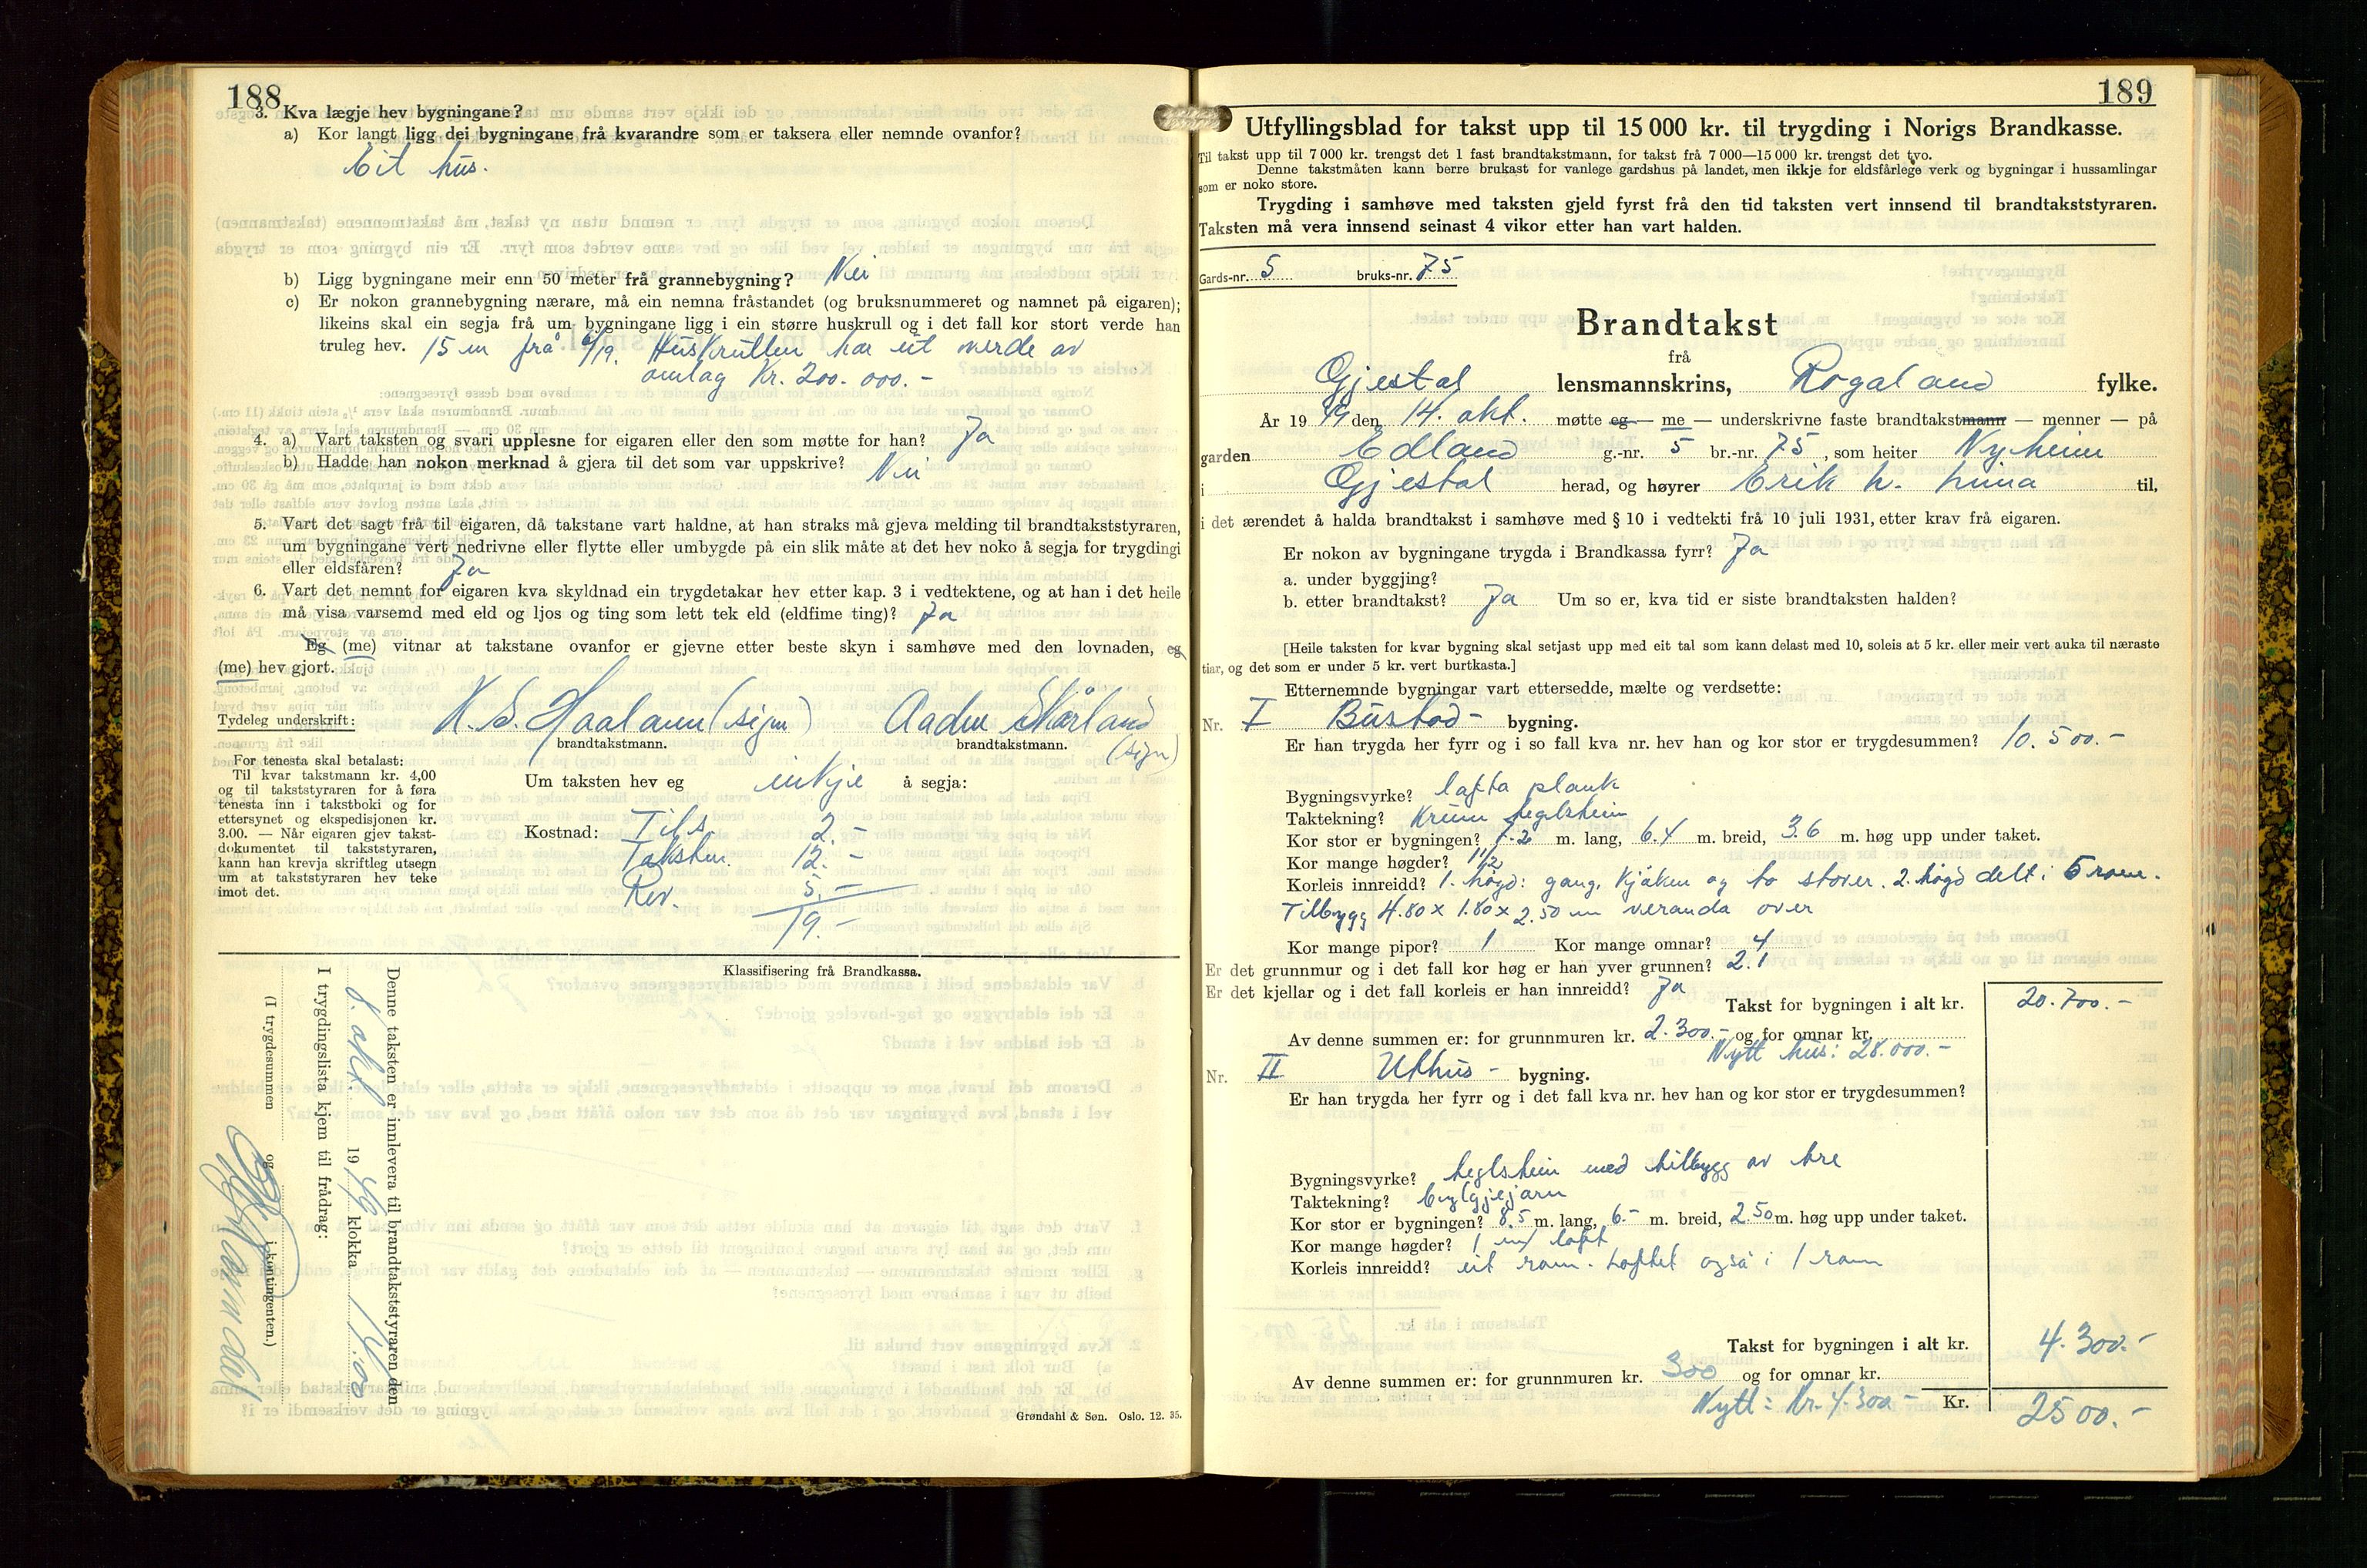 188
3. Kva lægje hev bygningane?
a) Kor langt ligg dei bygningane frå kvarandre som er taksera eller nemnde ovanfor?
Eit hus.
b) Ligg bygningane meir enn 50 meter frå grannebygning? Nei
c) Er nokon grannebygning nærare, må ein nemna fråstandet (og bruksnummeret og namnet på eigaren);
likeins skal ein segja frå um bygningane ligg i ein større huskrull og i det fall kor stort verde han
truleg hev. 15 m frå 6/19. Huskrullen har eit verde av
omlag Kr. 200.000.-
4. a) Vart taksten og svari upplesne for eigaren eller den som møtte for han? Ja
b) Hadde han nokon merknad å gjera til det som var uppskrive? Nei
5. Vart det sagt frå til eigaren, då takstane vart haldne, at han straks må gjeva melding til brandtakststyraren,
um bygningane vert nedrivne eller flytte eller umbygde på ein slik måte at det hev noko å segja for trygdingi
eller eldsfåren? Ja
6. Vart det nemnt for eigaren kva skyldnad ein trygdetakar hev etter kap. 3 i vedtektene, og at han i det heile
må visa varsemd med eld og ljos og ting som lett tek eld (eldfime ting)? Ja
Eg (me) vitnar at takstane ovanfor er gjevne etter beste skyn i samhøve med den lovnaden, eg
(me) hev gjort.
Tydeleg underskrift: K. S. Haaland (sign) Aadne Skårland
brandtakstmann. brandtakstmann. (sign)
For tenesta skal betalast:
Til kvar takstmann kr. 4,00
og til takststyraren for å føra
tenesta inn i takstboki og for
ettersynet og ekspedisjonen kr.
3.00. — Når eigaren gjev takst-
dokumentet til takststyraren,
kann han krevja skriftleg utsegn
um at takststyraren hev teke
imot det.
Um taksten hev eg inkje å segja:
Kostnad: Tils. 2.-
Taksten. 12.-
Rev. 5.-
19.-
Klassifisering frå Brandkassa.
Denne taksten er innlevera til brandtakststyraren den
19 49 klokka
I trygdingslista kjem til frådrag:
(I trygdesummen og i kontingenten.)
Grøndahl & Søn. Oslo. 12. 35.
189
Utfyllingsblad for takst upp til 15 000 kr. til trygding i Norigs Brandkasse.
Til takst upp til 7 000 kr. trengst det 1 fast brandtakstmann, for takst frå 7 000—15 000 kr. trengst det tvo.
Denne takstmåten kann berre brukast for vanlege gardshus på landet, men ikkje for eldsfårlege verk og bygningar i hussamlingar
som er noko store.
Trygding i samhøve med taksten gjeld fyrst frå den tid taksten vert innsend til brandtakststyraren.
Taksten må vera innsend seinast 4 vikor etter han vart halden.
Gards-nr. 5 bruks-nr. 75
Brandtakst
frå
Gjestal lensmannskrins, Rogaland fylke.
År 19 49 den 14. okt. møtte eg — me — underskrivne faste brandtakstmann — menner — på
garden Edland g.-nr. 5 br.-nr. 75, som heiter Nyheim
i Gjestal herad, og høyrer Erik H. Lima til,
i det ærendet å halda brandtakst i samhøve med § 10 i vedtekti frå 10 juli 1931, etter krav frå eigaren.
Er nokon av bygningane trygda i Brandkassa fyrr? Ja
a. under byggjing?
b. etter brandtakst? Ja Um so er, kva tid er siste brandtaksten halden?
[Heile taksten for kvar bygning skal setjast upp med eit tal som kann delast med 10, soleis at 5 kr. eller meir vert auka til næraste
tiar, og det som er under 5 kr. vert burtkasta.]
Etternemnde bygningar vart ettersedde, mælte og verdsette:
Nr. I Bustad- bygning.
Er han trygda her fyrr og i so fall kva nr. hev han og kor stor er trygdesummen? 10.500.-
Bygningsvyrke? lafta plank
Taktekning? Krum teglstein
Kor stor er bygningen? 7.20 m. lang, 6.4 m. breid, 3.6 m. høg upp under taket.
Kor mange høgder? 1 1/2
Korleis innreidd? 1. høgd: gang, kjøken og to stover. 2. høgd delt i 5 rom.
Tilbygg 4.80 x 1.80 x 2.50 m veranda over
Kor mange pipor? 1 Kor mange omnar? 4
Er det grunnmur og i det fall kor høg er han yver grunnen? 2.1
Er det kjellar og i det fall korleis er han innreidd? Ja
Takst for bygningen i alt kr. 20.700.-
Av denne summen er: for grunnmuren kr. 2.300.- og for omnar kr.
Nytt hus: 28.000.-
Nr. II Uthus- bygning.
Er han trygda her fyrr og i det fall kva nr. hev han og kor stor er trygdesummen?
Bygningsvyrke? teglstein med tilbygg av tre
Taktekning? Bylgjejarn
Kor stor er bygningen? 8.5 m. lang, 6.- m. breid, 2.50 m. høg upp under taket.
Kor mange høgder? 1 m/ loft
Korleis innreidd? eit rom. Loftet også i 1 rom
Takst for bygningen i alt kr. 4.300.-
Av denne summen er: for grunnmuren kr. 300 og for omnar kr.
Nytt: Kr. 4.300.- Kr. 2500.-